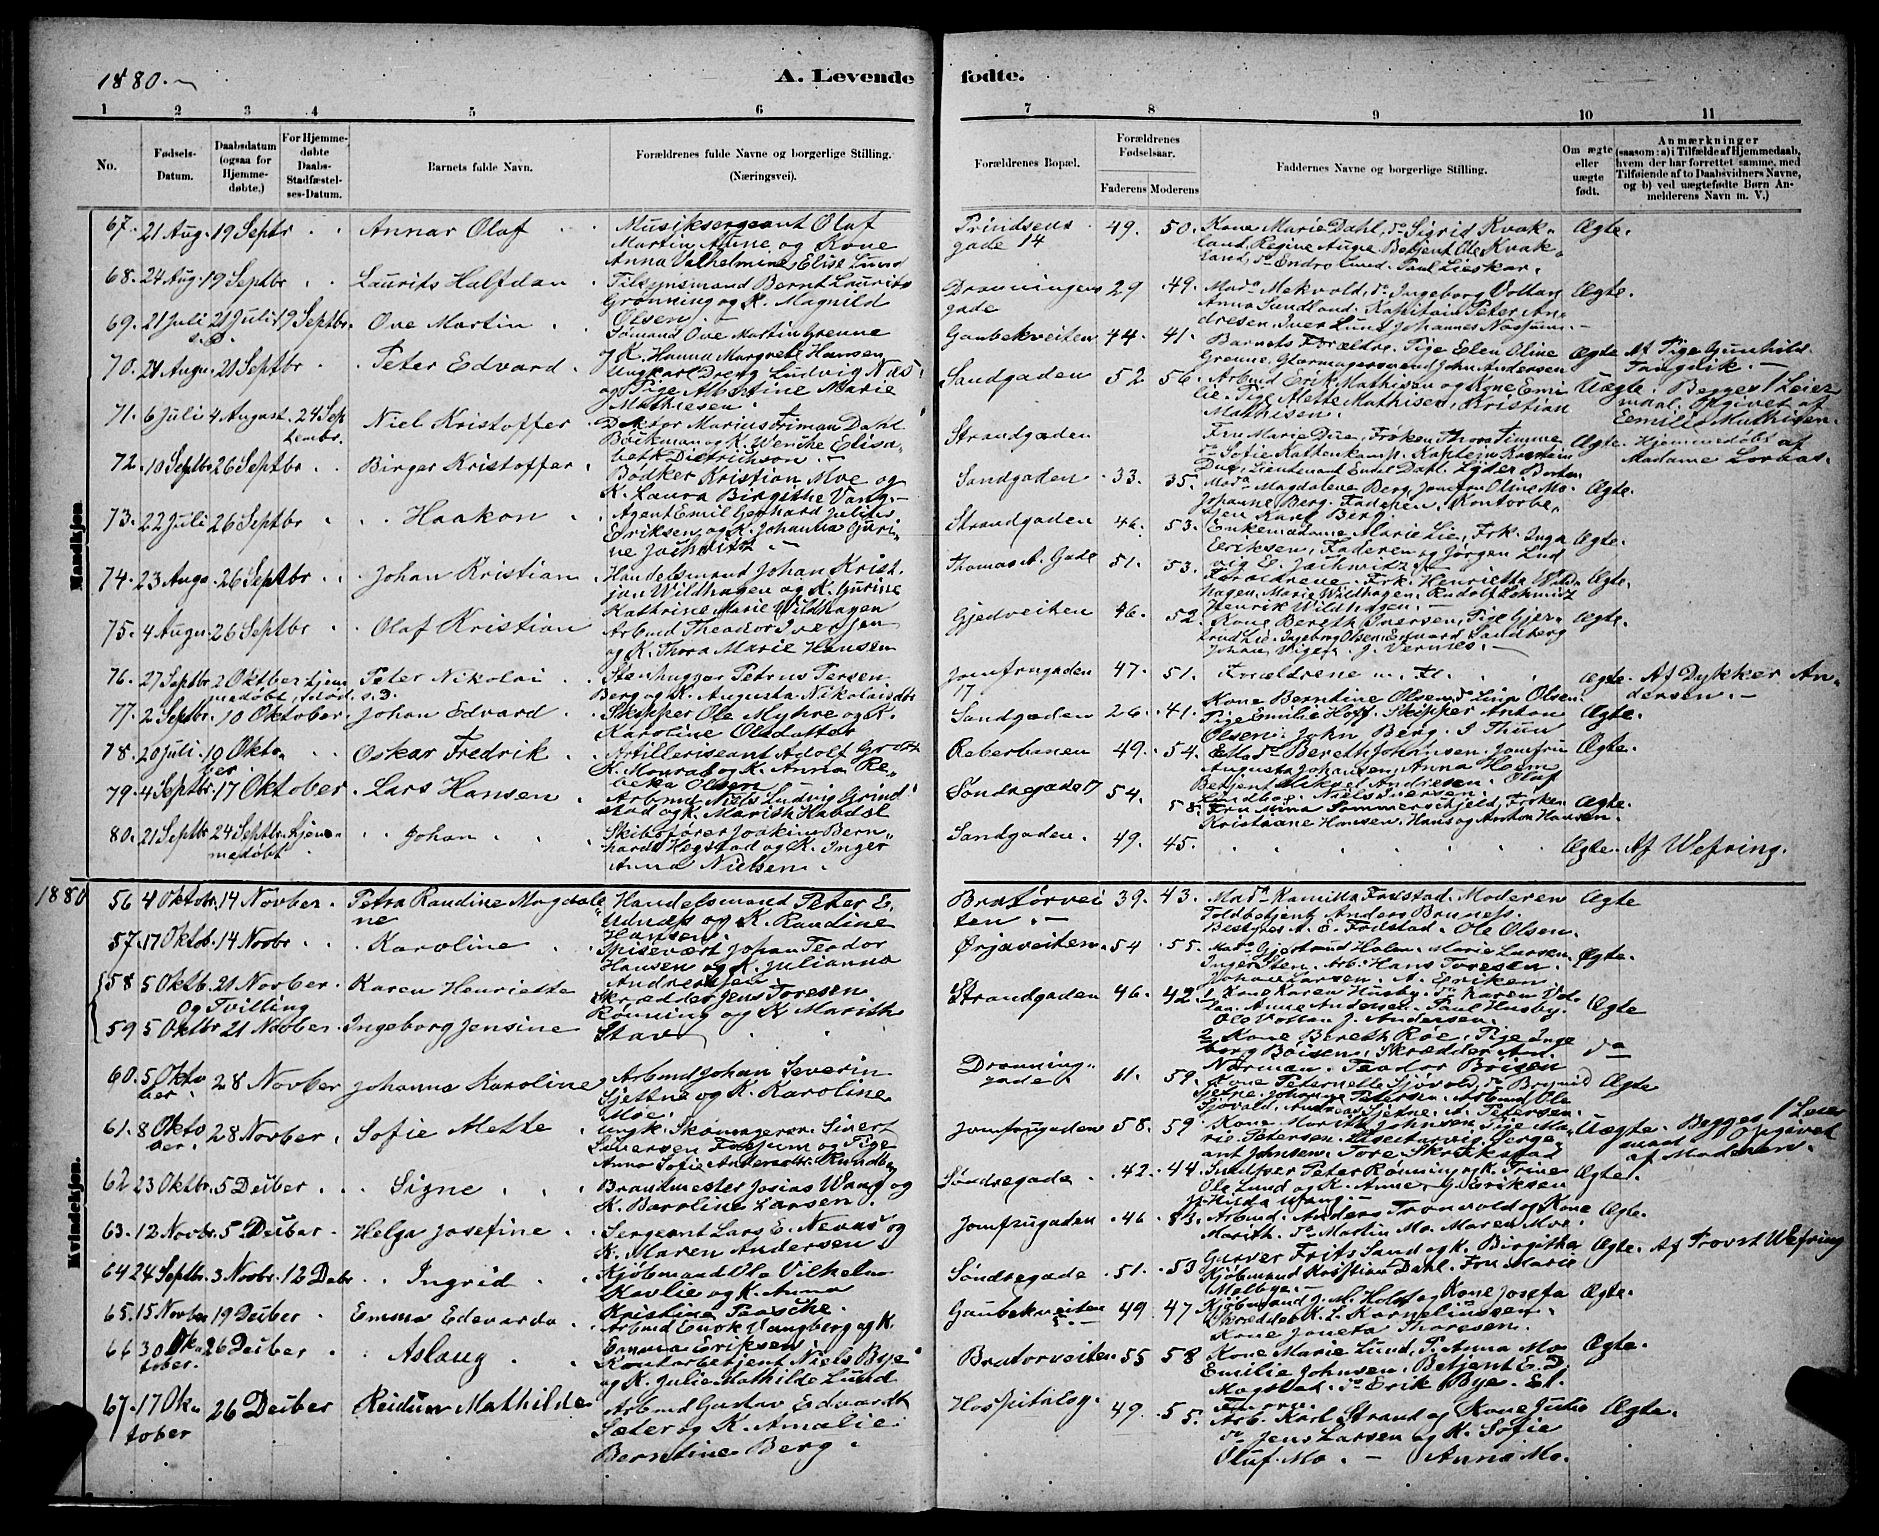 1880.
A. Levende
fødte.
1 2 3 4 5 6
7 8 9 10 11
No.
Fødsels-
Datum.
Daabsdatum
(ogsaa for
Hjemme-
døbte.)
For Hjemme-
døbte
Daabs-
Stadfæstel-
ses-Datum.
Barnets fulde Navn.
Forældrenes fulde Navne og borgerlige Stilling.
(Næringsvei).
Forældrenes Bopæl.
Forældrenes
Fødselsaar.
Faderens Moderens
Faddernes Navne og borgerlige Stilling.
Om ægte
eller
uægte
født.
Anmærkninger
(saasom: a) i Tilfælde af Hjemmedaab,
hvem der har forrettet samme, med
Tilføiende af to Daabsvidners Navne,
og b) ved uægtefødte Børn An-
melderens Navn m. V.)
Mandkjøn.
67. 21 Aug. 19 Septbr Annar Olaf Musiksergeant Olaf
Martin Aune og Kone
Anna Vilhelmine Elise Lund
Prindsens
gade 14
49. 50. Kone Marie Dahl, do Sigrid Kvak-
land, Regine Aune. Betjent Ole Kvak-
land, do Endre Lund. Paul Lieskar.
Ægte.
68. 24 Aug. 19 Septbr Laurits Halfdan Tilsynsmand Bernt Laurits
Grønning og K. Magnild
Olsen.
Dronningens
gade
29 49. Ingeborg Vollan
Anna Sandland. Kaptein Peter An-
dresen, Iver Lund, Johannes
Ægte.
69. 21 Juli 21 Juli 19 Septbr. Ove Martin Sømand Ove Martin Grenne
s.D.
og K. Hanna Margrete Hansen
Gaubekveiten 44. 41. Barnets Forældre. Pige Elen Oline
Grenne, John Andersen
Ægte. Af Pige Gunhild
70. 21 Augu. 21 Septbr Peter Edvard Ungkarl Ludvig Næs
og Pige Albertine Marie
Mathiesen.
Sandgaden 52 56. Arbmd Erik Mathisen og Kone Emi-
lie. Pige Alette Mathisen, Kristian
Mathisen.
Uægte. Begges 1 Leier
maal. Opgivet af
Emilie Mathisen.
71. 6 Juli 4 August. 24 Sep
tembr. Niel Kristoffer Doktor Marius Dahl
Bøckman og K. Wenche Elisa-
beth Dietrichson
Strandgaden
Fru Marie Due, Frøken Thora
do Sofie Kattenkamp. Kaptein
Due, Lieutenant Endel Dahl.
Ægte. Hjemmedøbt af
Madame
72. 10 Septbr. 26 Septbr Birger Kristoffer Bødker Kristian Moe og
K. Laura Birgithe Vang.
Sandgaden 33. 35. Magdalene Berg, Jomfru Oline Mo.
Johanne Berg. Faderen, Kontorbe-
tjen Karl Berg.
Ægte.
73. 22 Juli 26 Septbr Haakon Agent Emil Gerhard Julius
Eriksen og K. Johanna Guri-
ne
Strandgaden 46. 53. Enkemadame Marie Lie, Frk. Inga
Eeriksen, Faderen og Jørgen Lud
vig E.
Ægte.
74. 23 Augu 26 Septbr Johan Kristian Handelsmand Johan Krist-
jan Wildhagen og K. Gurine
Kathrine Marie Wildhagen
Thomas A. Gade 51. 53. Forældrene. Frk. Henriette Wild-
hagen, Marie Wildhagen, Rudolf Schmidt
Henrik Wildhagen.
Ægte.
75. 4 Augu 26 Septbr Olaf Kristian Arbmd Theodor Iversen
og K. Thora Marie Hansen
Gjedveiten 46. 52. Kone Bereth Iversen, Pige Gjer-
trud Lie. Ingeborg Olsen, Edvard Sandberg
Ægte.
76. 27 Septbr. 2 Oktber hjem
medøbt, Peter Nikolai Stenhugger Petrus Persen
Berg og K. Augusta Nikolaisdtr
Jomfrugaden
17
47. 51. Forældrene m. Fl.
Ægte. Af Dykker An-
dersen.
77. 2 Septbr. 10 Oktober Johan Edvard Skipper Ole Myhre og K.
Karoline Olsdatter
Sandgaden 26. 41. Kone Berntine Olsen, do Lina Olsen
Pige Emilie Hoff. Skipper Anton
Olsen. John Berg. I Thun
Ægte.
78. 20 Juli. 10 Okto-
ber Oskar Fredrik Adolf
K. Monrad og K. Anna Re-
beka Olsen
Reberbanen 49. 54. Bereth Johansen. Jomfru
Augusta Johansen, Anna Hoem
Betjent Mikael Andresen. Olaf
Niels Iversen.
Ægte.
79. 4 Septbr 17 Oktober Lars Hansen Arbmd Niels Ludvig Grind
stad og K. Marith
Søndregade 17 54. 58. Fru Mina Sommerschjeld, Frøken
Kristiane Hansen. Hans og Anton Hansen.
Ægte.
80. 21 Septbr 24 Septbr. hjem
medøbt Johan Skibsfører Joakim Bern-
hard Hegstad og K. Inger
Anna Nielsen.
Sandgaden. 49. 45.
Ægte. Af Wefring.
1880
Kvindekjøn.
56 4 Oktobr. 14 Novber. Petra Randine Magdale
ne Handelsmand Peter E.
Udnæss og K. Randine
Hansen.
Bratørvei
ten.
39. 43. Mad Kamilla Fredstad. Moderen
Toldbetjent Anders Bruness.
Bestyrer A. E. Fredstad. Ole Olsen.
Ægte
57. 17 Oktob. 14 Novbr Karoline Spisevært Johan Teodor
Hansen og K. Julianna
Andresen
Ørjaveiten. 54 55. Mad Gjertrud Holm. Marie Larsen
Inger Sten. Arb. Hans Toresen.
Johan Larsen. A. Eriksen
Ægte.
58 5 Oktb. 21 Novber. Karen Henriette Skrædder Jens Toresen
Og Tvilling
Rønning og K. Marith
Stav
Strandgaden 46. 42. 1. Kone Karen Husby. do Karen Vol-
lan. Anne Andersen. Paul Husby.
Ole Vollan J. Andersen.
Ægte
59 5 Oktbr 21 Novber. Ingeborg Jensine
2 Kone Bereth Røe, Pige Inge
borg Boisen, Skrædder An.
Norman. Teodor Boisen
do
60. 5 Okto
ber. 28 Novber Johanna Karoline Arbmd Johan Severin
Sjettne og K. Karoline
Moe.
Dronning-
gade. 61. 59. Kone Peternelle Sjøvold, do Brynild
Sjetne, Johanna Petersen. Arbmd Ole
Sjøvold, Andreas Sjetne. A. Petersen.
Ægte
61. 8 Okto
ber. 28 Novber. Sofie Mette Ungk. Skomagersv. Sivert
Siversen Fossum og Pige
Anna Sofie Andersdtr.
Jomfrugaden 58. 59 Kone Marith Johnsen. Pige Ma-
rie Petersen. Serge-
ant Johnsen. Tore Skrikstad
Uægte. Begges 1 Leier
maal Opgivet
af Moderen.
62 23 Oktbr. 5 Deiber Signe Brandmester Josias Wang og
K. Baroline Larsen.
Søndregade. 42. 44. Peter Rønning og K. Trine
Ole Lund og K. Anne, G. Eriksen
Hilda Wang.
Ægte.
63. 12 Novbr. 5 Deiber Helga Josefine Sergeant Lars E. og
K. Maren Andersen
Jomfrugaden 46. Arbmd. Anders Tronvold og Kone
Marith. do Martin Mo. Maren Moe
Ægte.
64 24 Septbr. 3 Novbr. 12 Debr Ingrid Kjøbmand Ole Vilhelm
Kavlie og K. Anna
Kristine Paasche.
Søndregade 51. 53 Garver Frits Sand og K. Birgitha
Kjøbmand Kristian Dahl. Fru Marie
Ægte. Af Provst Wefring
65. 15 Novbr 19 Deiber Emma Edevarda Arbmd Enok Vangberg og K.
Emma Eriksen
Gaubekveiten 49. 47 Kjøbmand J. M. Holst og Kone Josefa
Skrædder K. L. Kornelinssen.
Kone Joneta Thoresen.
Ægte.
66 30 Ok
tober. 26 Deiber Aslaug Kontorbetjent Niels Bye
og K. Julie Mathilde Lund
Bratørveiten 55 58 Kone Marie Lund, P. Anna Mo.
Emilie Johnsen, Betjent E.
do Erik Bye.
Ægte.
67. 17 Ok
tober 26 Deiber Reidun Mathilde Arbmd Gustav Edvardt
Sæter og K. Amalie
Berntine Berg.
Hospitalsg. 49. 55. Arb. Karl Strand og Kone Julie
do Jens Larsen og K. Sofie
Oluf Mo. — Anna Mo.
Ægte.